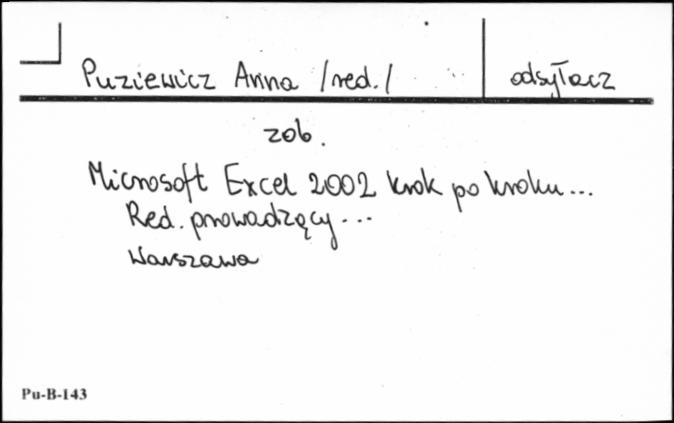 Puziewicz Anna /red./ odsyłacz
zob.
Microsoft Excel 2002 krok po kroku...
Red. prowadzący...
Warszawa
Pu-B-143